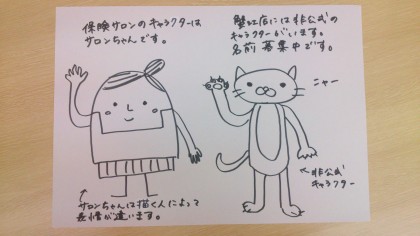 保険サロンのキャラクターは
サロンちゃんです。
蟹江店には非公式の
キャラクターがいます。
名前募集中です。
にゃー
サロンちゃんは描く人によって
表情が違います。
非公式
キャラクター